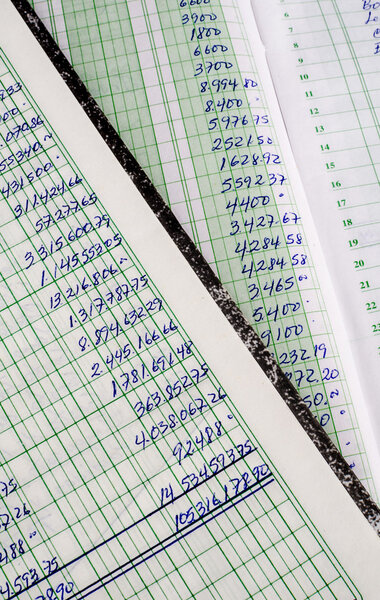 6600
3900
1800
6600
3700
8.994 80
8.400
5976 75
2521 50
1628.92
5592 37
4400
3.427.67
4284 58
4284 58
3.465
5.400
9.100
232 19
72.20
50.
0
6
7
8
9
10
11
12
13
14
15
16
17
18
19
20
21
22
.070.86
55340.
431500.
311424.66
57277.65
3.315.600.79
13.216.806
1.317.787.75
8.894.632 29
2.445.166.66
1781.691.48
363.852 75
4.038.067.26
92488
14.534593 75
105316178 90
75
7.26
488
4.593 75
78.90